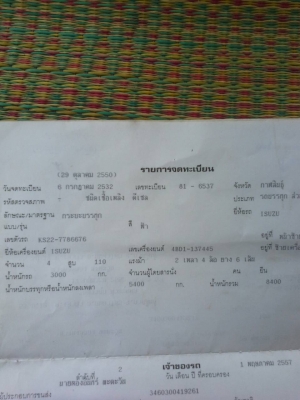 (29 ตุลาคม 2550) รายการจดทะเบียน
วันจดทะเบียน 6 กรกฎาคม 2532 เลขทะเบียน 81 - 0537 จังหวัด กาฬสินธุ์
รหัสตรวจสภาพ - ชนิดเชื้อเพลิง ดีเซล ประเภท รถยบรรทุก
ลักษณะ/มาตรฐาน กระบะบรรทุก ยี่ห้อรถ ISUZU
แบบ/รุ่น สี ฟ้า
เลขตัวรถ อยู่ที่
ยี่ห้อเครื่องยนต์ ISUZU เลขเครื่องยนต์ 4BD1-137445 อยู่ที่
จำนวน 4 สูบ 110 แรงม้า 2 เพลา 4 ล้อ ยาง 6 เส้น
น้ำหนักรถ 3000 กก. จำนวนผู้โดยสารนั่ง คน ยืน
น้ำหนักบรรทุกหรือน้ำหนักลงเพลา 5400 กก. น้ำหนักรวม 8400
เจ้าของรถ
ลำดับที่ 2 วัน เดือน ปี ที่ครอบครอง 1 พฤษภาคม 2557
ผู้ประกอบการขนส่ง 3460300419261